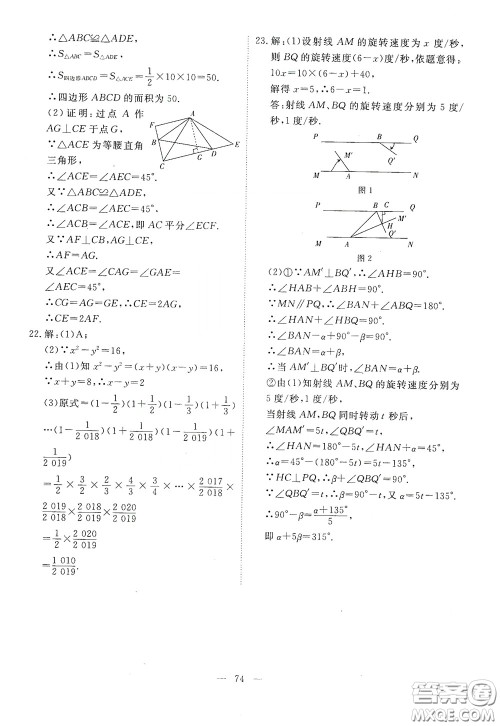 ∴△ABC≌△ADE,
∴S△ABC=S△ADE,
∴S四边形ABCD=S△ACE=1/2×10×10=50.
∴四边形 ABCD 的面积为 50.
(2)证明:过点 A 作
AG⊥CE 于点 G,
∵△ACE 为等腰直角
三角形,
∴∠ACE=∠AEC=45°.
又∵△ABC≌△ADE,
∴∠ACB=∠AEC=45°,
∴∠ACB=∠ACE,即 AC 平分∠ECF.
又∵AF⊥CB,AG⊥CE,
∴AF=AG.
又∵∠ACE=∠CAG=∠GAE=
∠AEC=45°,
∴CG=AG=GE,∴CE=2AG,
∴CE=2AF.
F A B G D E C
22.解:(1)A;
(2)∵x²-y²=16,
∴由(1)知 x²-y²=(x+y)(x-y)=16,
∵x+y=8,∴x-y=2
(3)原式=(1-1/2)(1+1/2)(1-1/3)(1+1/3)
…(1-1/2 018)(1+1/2 018)(1-1/2 019)(1+
1/2 019)
=1/2×3/2×2/3×4/3×…×2 017/2 018×
2 019/2 018×2 018/2 019×2 020/2 019
=1/2×2 020/2 019
=1 010/2 019.
23.解:(1)设射线 AM 的旋转速度为 x 度/秒,
则 BQ 的旋转速度(6-x)度/秒,依题意得:
10x=10×(6-x)+40,
解得 x=5,∴6-x=1.
答:射线 AM,BQ 的旋转速度分别为 5 度/
秒,1 度/秒.
P B Q
M′ Q′
M A N
图 1
P B C Q
M′
H
Q′
M A N
图 2
(2)①∵AM′⊥BQ′,∴∠AHB=90°.
∴∠HAB+∠ABH=90°.
∵MN∥PQ,∴∠BAN+∠ABQ=180°.
∴∠HAN+∠HBQ=90°.
∴∠BAN-α+β=90°,
∴∠BAN=90°+α-β,
∴当 AM′⊥BQ′
②由(1)知射线 AM,BQ 的旋转速度分别为
5 度/秒,1 度/秒.
当射线 AM,BQ 同时转动 t 秒后,
∠MAM′=5t,∠QBQ′=t.
∴∠HAN=180°-5t,∠HAN+α=45°.
∴α=45°-(180°-5t)=5t-135°,
∵HC⊥PQ,∴∠QBQ′=90°-β.
∵∠QBQ′=t,∠QBQ′=90°-β,又 α=5t-135°.
∴90°-β=α+135°/5,
即 α+5β=315°.
— 74 —
答案圈
MXQE.COM